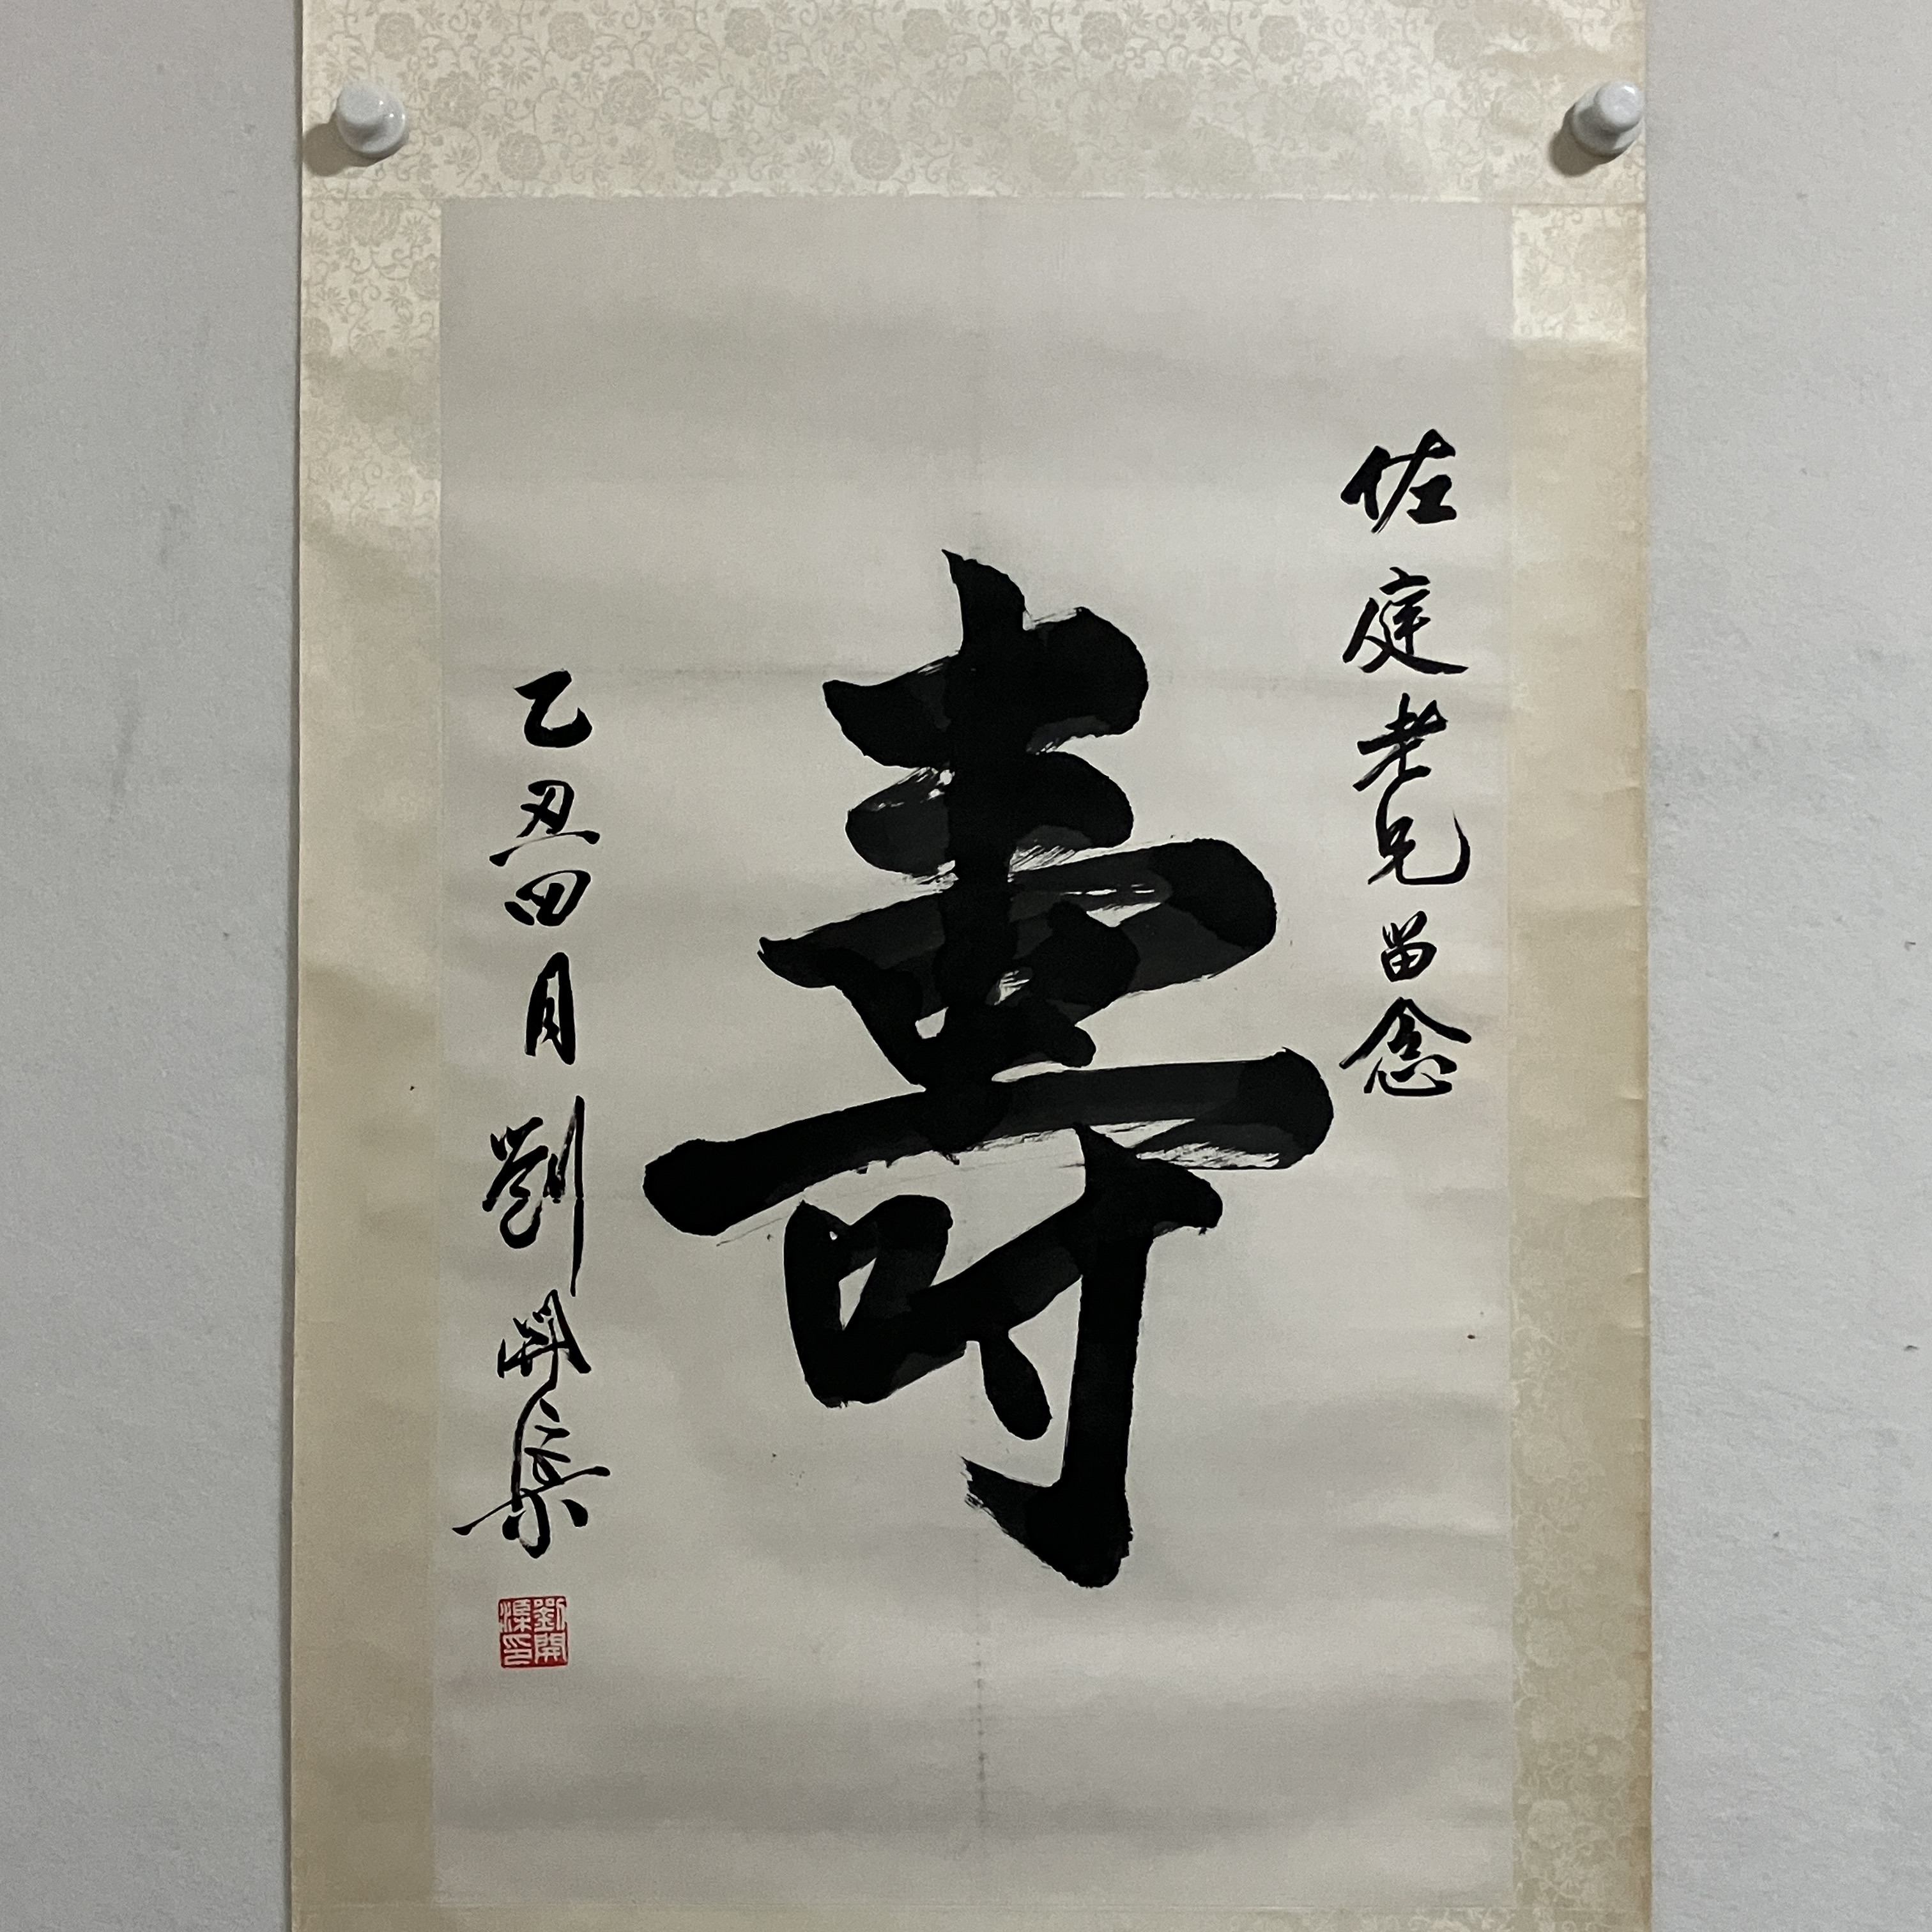 佐庭老兄留念
壽
乙丑四月劉開渠
劉開渠印